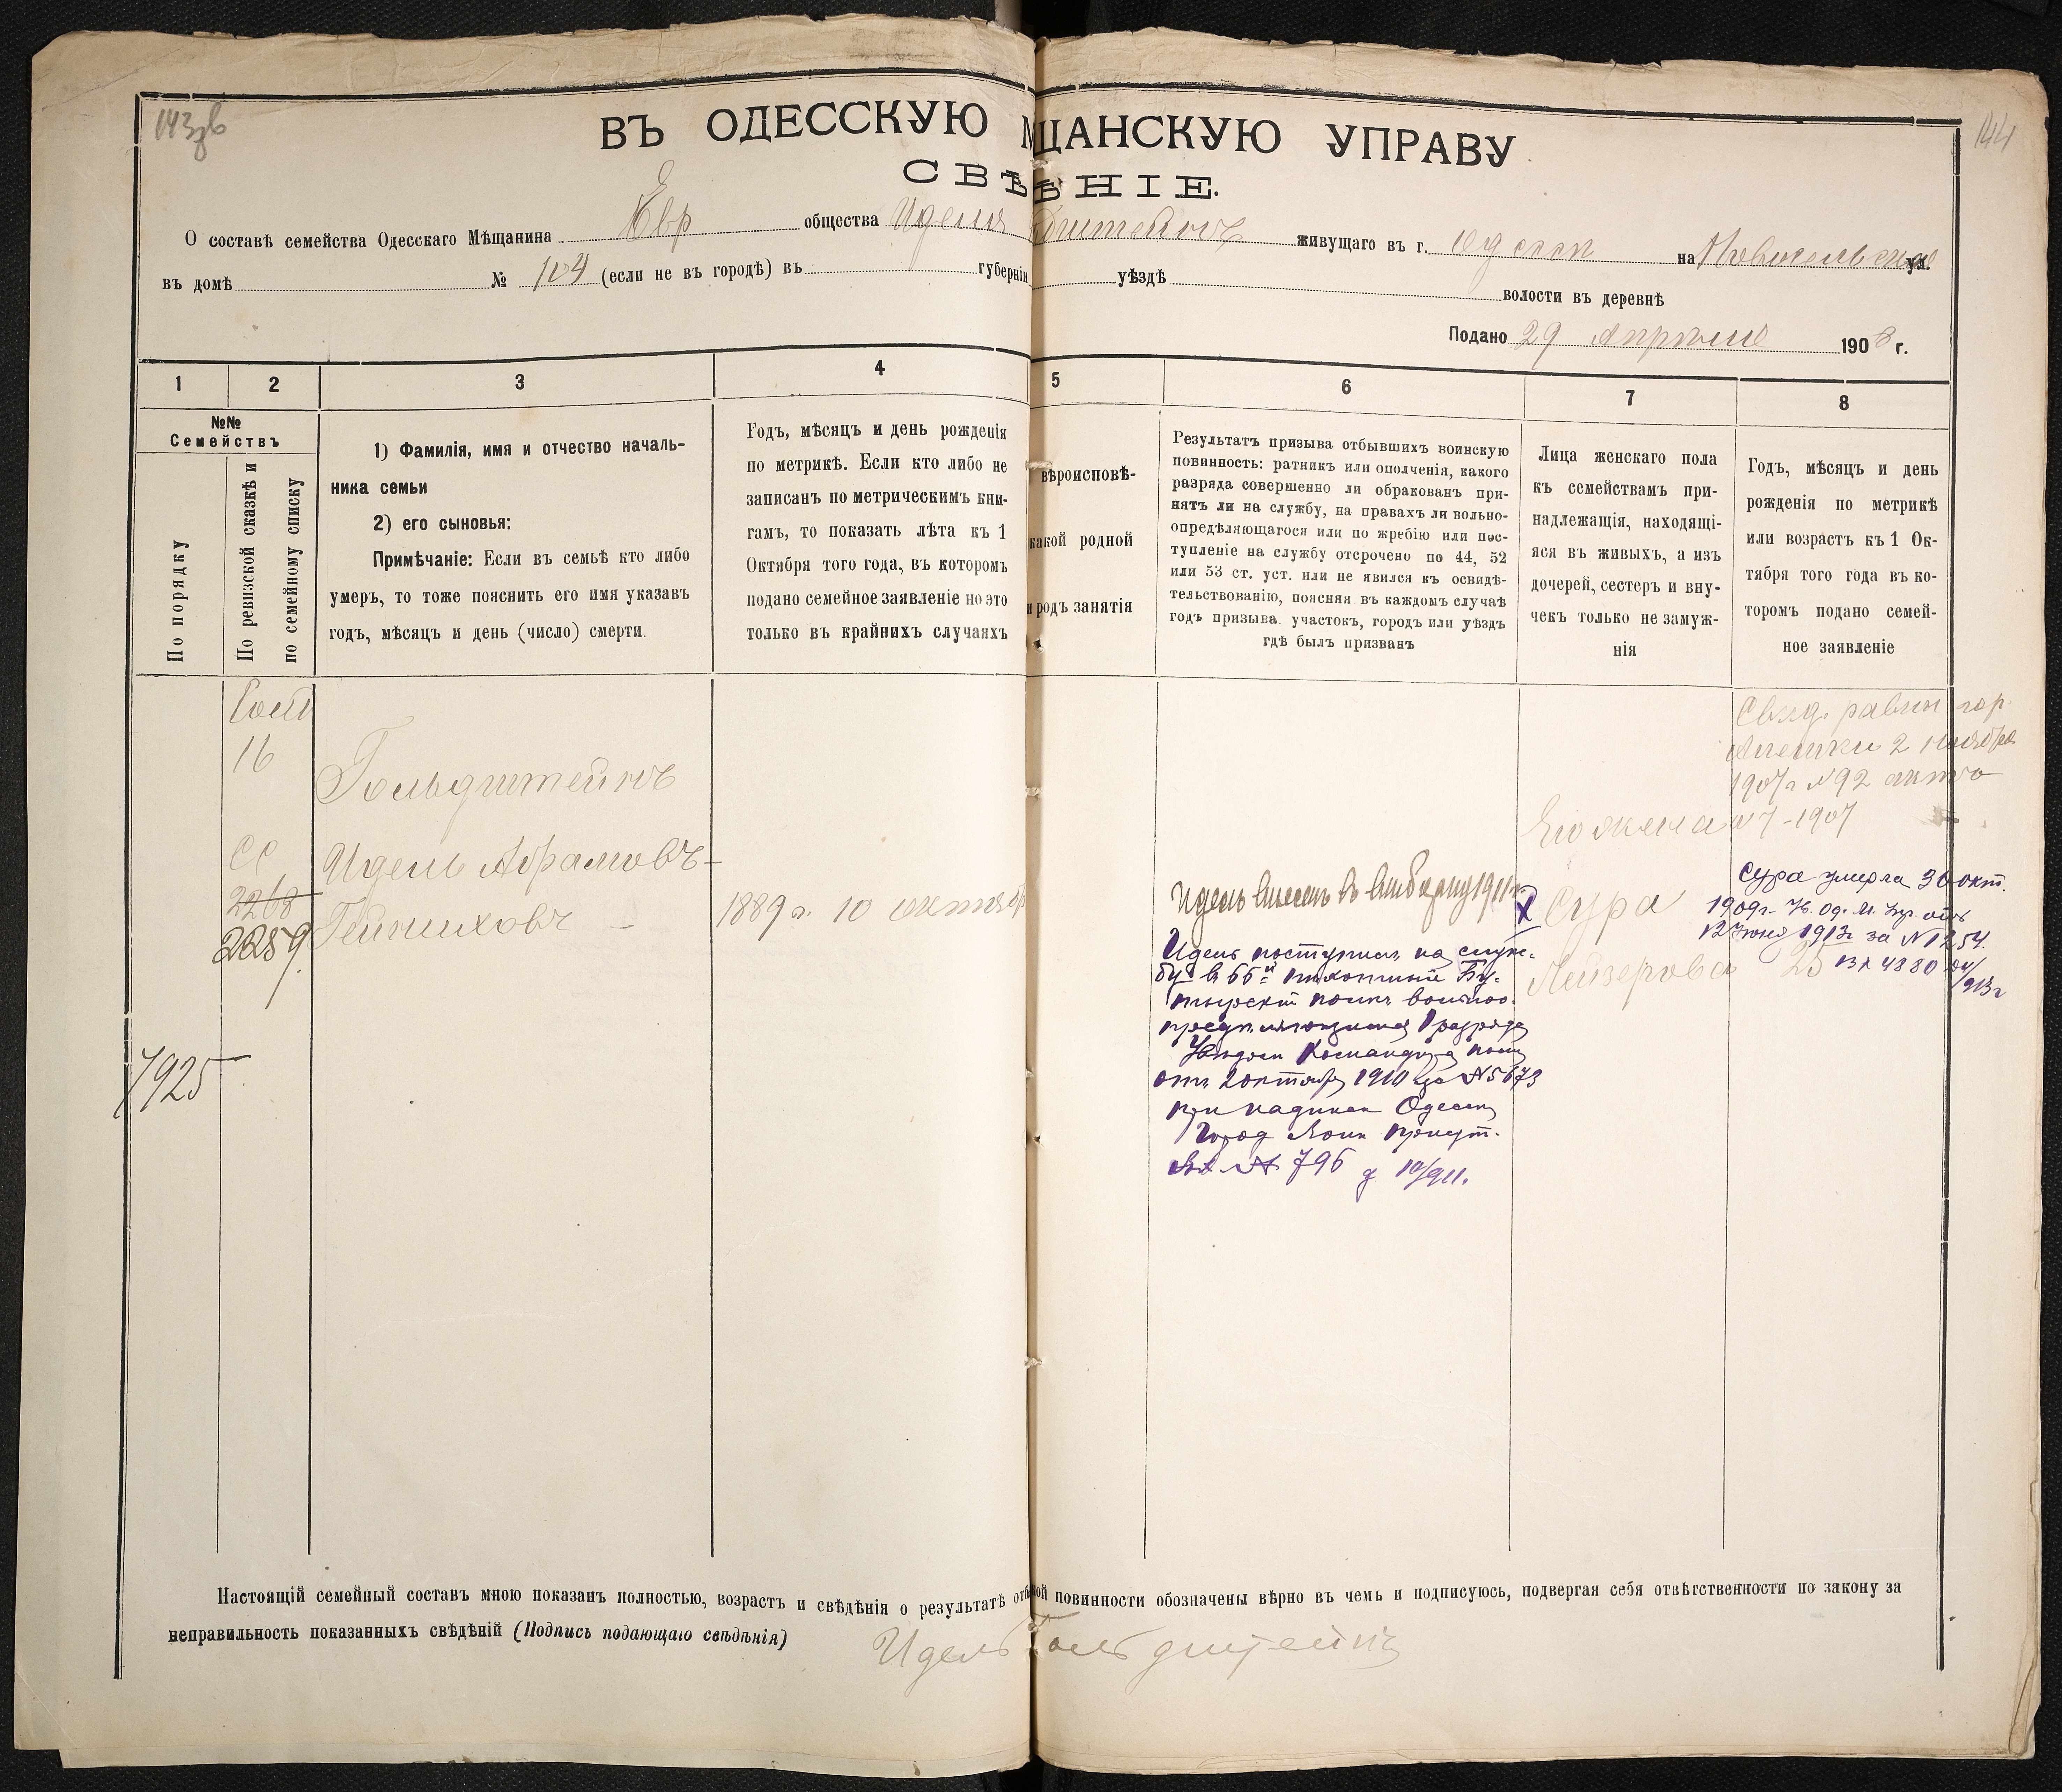 143 об
144
ВЪ ОДЕССКУЮ М ЩАНСКУЮ УПРАВУ
СВѢ ѢНІЕ.
О составѣ семейства Одесскаго Мѣщанина Евр общества Иделя дштейнъ живущаго въ г. Одессѣ на Новосельской ул.
въ домѣ № 104 (если не въ городѣ) въ губерніи уѣздѣ волости въ деревнѣ
Подано 29 Апрѣля 1908 г.
1 2 3 4 5 6 7 8
№№
Семействъ
По порядку
По ревизской сказкѣ и
по семейному списку
1) Фамилія, имя и отчество началь-
ника семьи
2) его сыновья:
Примѣчаніе: Если въ семьѣ кто либо
умеръ, то тоже пояснить его имя указавъ
годъ, мѣсяцъ и день (число) смерти.
Годъ, мѣсяцъ и день рожденія
по метрикѣ. Если кто либо не
записанъ по метрическимъ кни-
гамъ, то показать лѣта къ 1
Октября того года, въ которомъ
подано семейное заявленіе но это
только въ крайнихъ случаяхъ
вѣроисповѣ-
какой родной
и родъ занятія
Результатъ призыва отбывшихъ воинскую
повинность: ратникъ или ополченія, какого
разряда совершенно ли обракованъ при-
нятъ ли на службу, на правахъ ли вольно-
опредѣляющагося или по жребію или пос-
тупленіе на службу отсрочено по 44, 52
или 53 ст. уст. или не явился къ освидѣ-
тельствованію, поясняя въ каждомъ случаѣ
годъ призыва участокъ, городъ или уѣздъ
гдѣ былъ призванъ
Лица женскаго пола
къ семействамъ при-
надлежащія, находящі-
яся въ живыхъ, а изъ
дочерей, сестеръ и вну-
чекъ только не замуж-
нія
Годъ, мѣсяцъ и день
рожденія по метрикѣ
или возрастъ къ 1 Ок-
тября того года въ ко-
торомъ подано семей-
ное заявленіе
16
СС
2268
2259
7925
Гольдштейнъ
Идель Абрамовъ-
Гейниховъ
1889 г. 10 октябр
Идель внесенъ въ 1911 г.
Идель поступилъ на служ-
бу въ 66й пѣхотный Бу-
тырскій полкъ вольноо-
предѣляющимся I разряда
Командира полка
отъ 2 октября 1910 за № 5673
при надписи Одесск
Город Воин Присут.
Вх № 796 д 10/911.
Его жена
Х Сура
Лейзерова 25
Свид. равин гор.
Алешки 2 ноября
1907 г № 92 актъ
№ 7-1907
Сура умерла 30 окт.
1909 г. Ув. Од. М. Упр. отъ
12 Іюня 1913 г за № 1254.
вх 4880 /913 г
Настоящій семейный составъ мною показанъ полностью, возрастъ и свѣдѣнія о результатѣ отб ной повинности обозначены вѣрно въ чемъ и подписуюсь, подвергая себя отвѣтственности по закону за
неправильность показанныхъ свѣдѣній (Подпись подающаго свѣдѣнія) Идель Гольдштейнъ